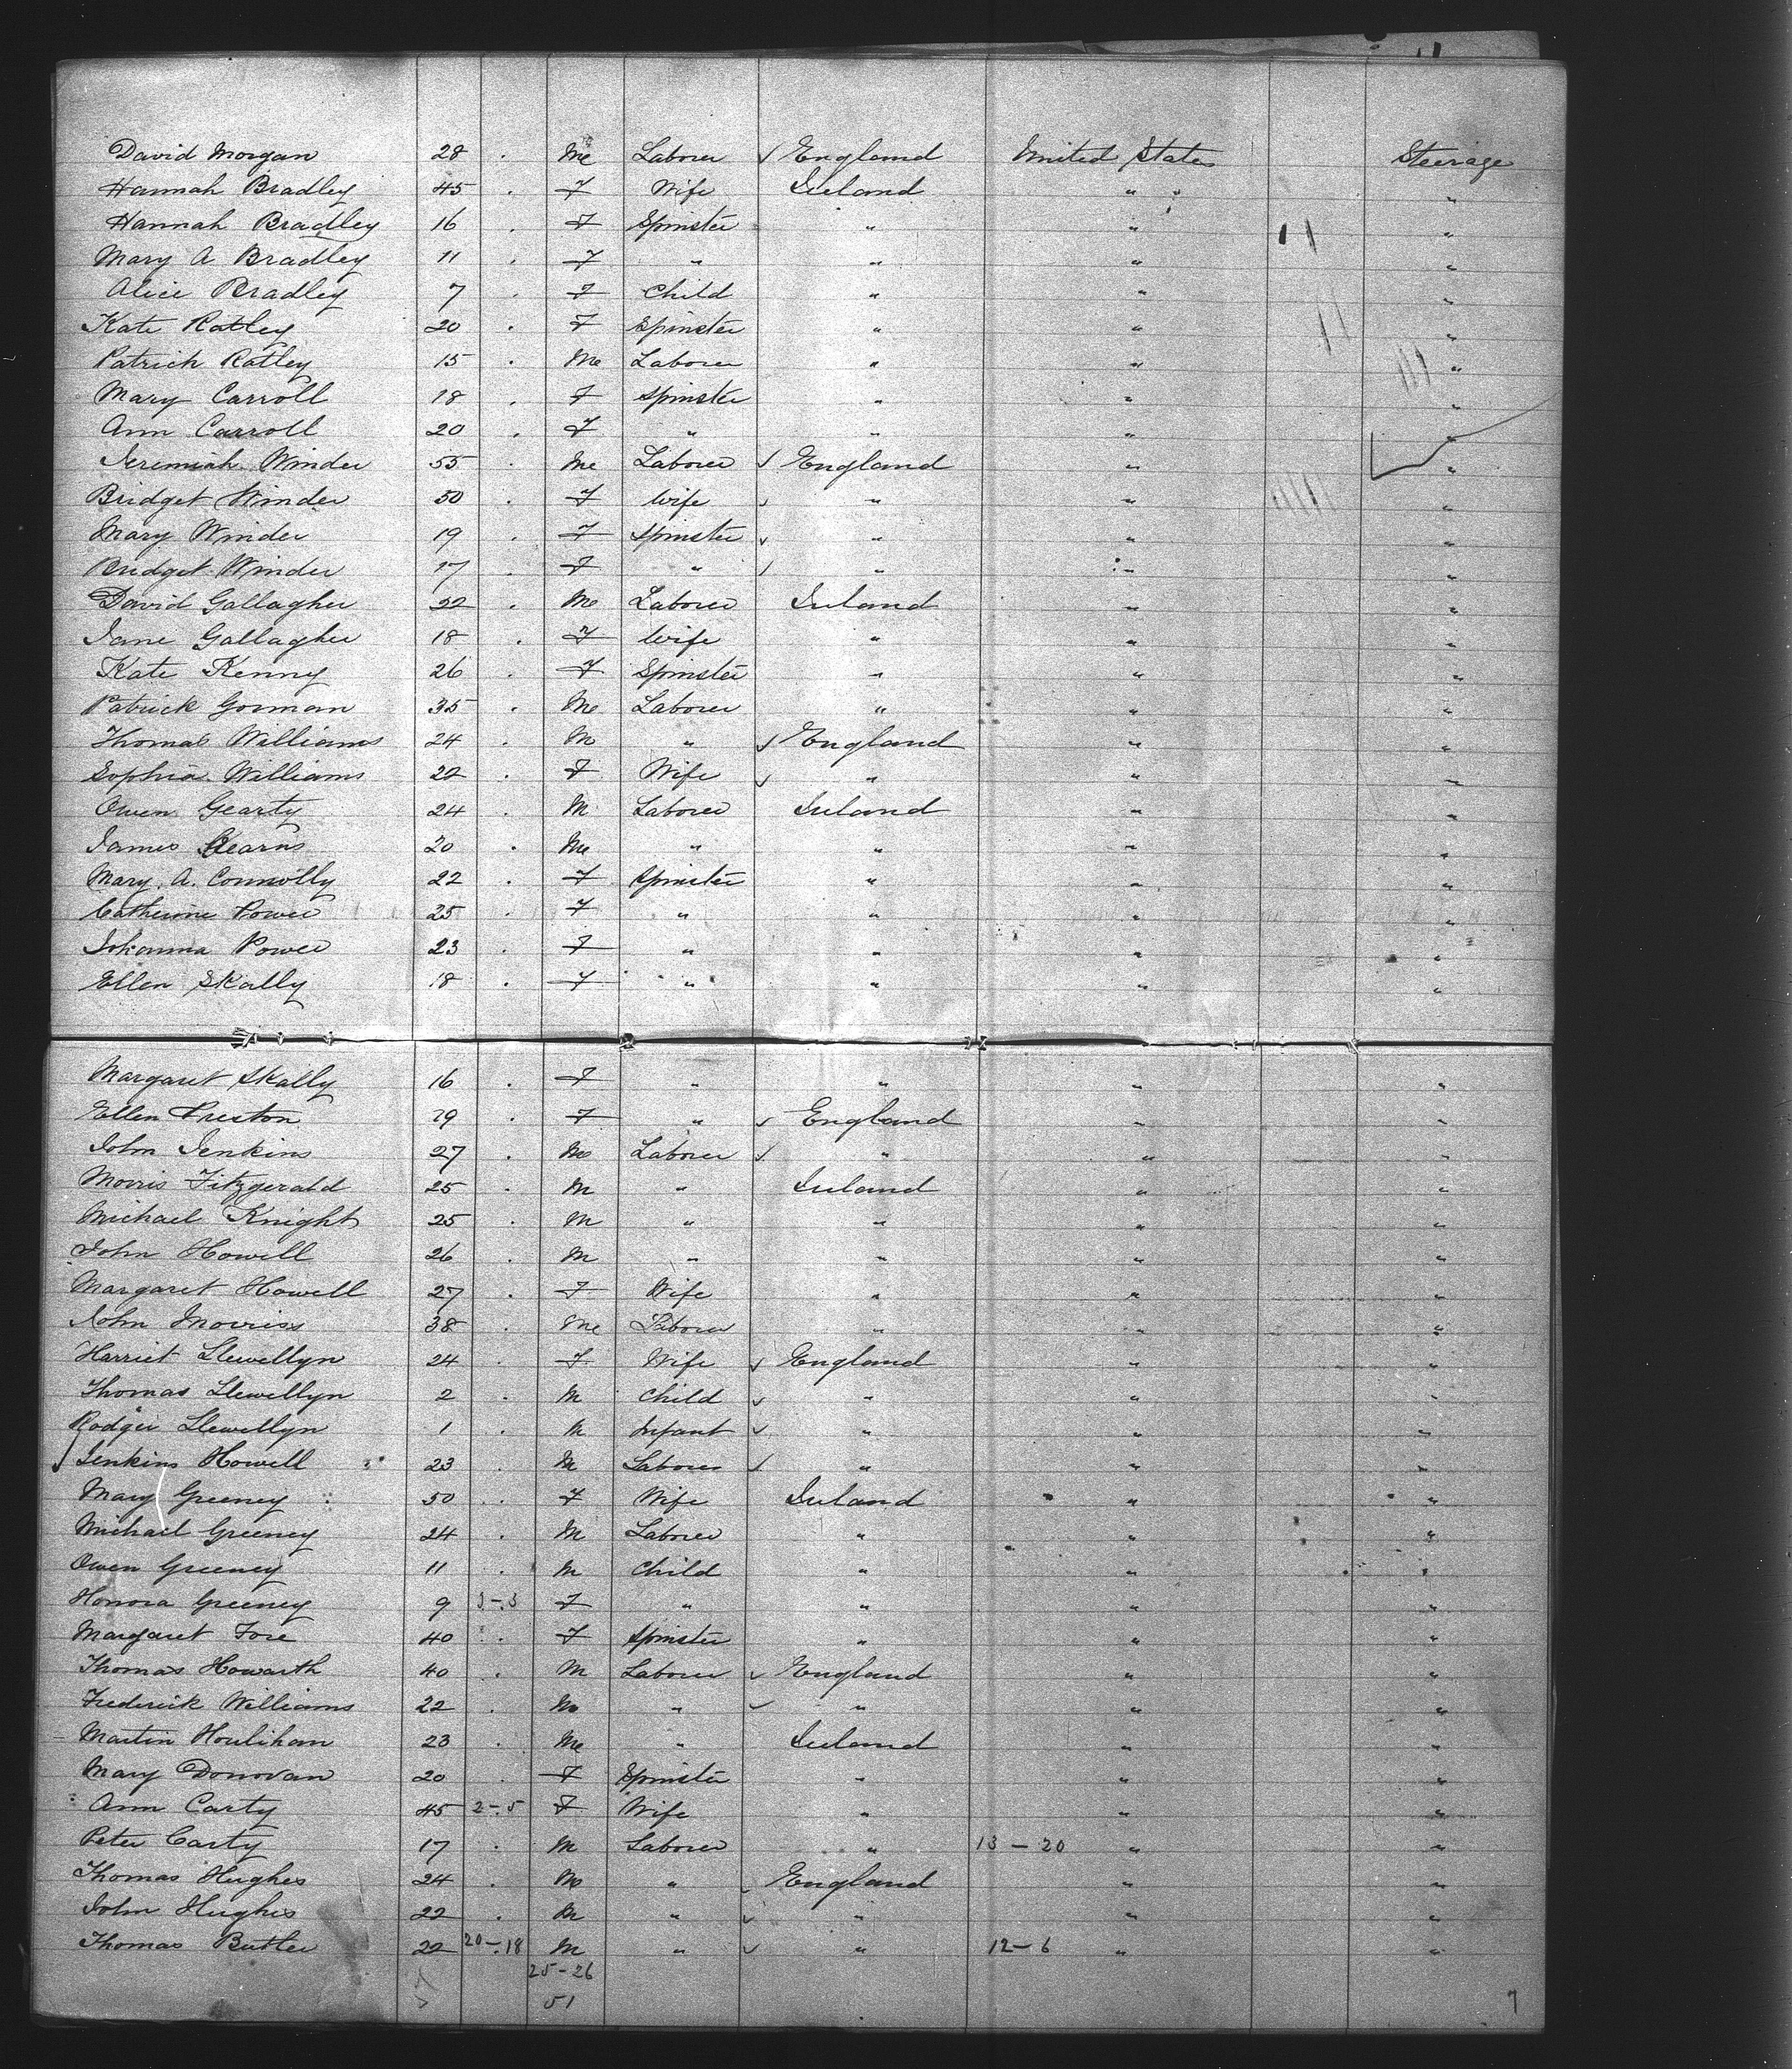 David Morgan 28 . M Laborer √ England United States Steerage
Hannah Bradley 45 . F Wife Ireland " " "
Hannah Bradley 16 . F Spinster " " "
Mary A Bradley 11 . F " " " "
Alice Bradley 7 . F Child " " "
Kate Ratley 20 . F Spinster " " "
Patrick Ratley 15 . M Laborer " " "
Mary Carroll 18 . F Spinster " " "
Ann Carroll 20 . F " " " "
Jeremiah Winder 55 . M Laborer √ England " "
Bridget Winder 50 . F Wife √ " " "
Mary Winder 19 . F Spinster √ " " "
Bridget Winder 17 . F " √ " " "
David Gallagher 22 . M Laborer Ireland " "
Jane Gallagher 18 . F Wife " " "
Kate Kenny 26 . F Spinster " " "
Patrick Gorman 35 . M Laborer " " "
Thomas Williams 24 . M " √ England " "
Sophia Williams 22 . F Wife √ " " "
Owen Gearty 24 . M Laborer Ireland " "
James Kearns 20 . M " " " "
Mary A. Connolly 22 . F Spinster " " "
Catherine Power 25 . F " " " "
Johanna Power 23 . F " " " "
Ellen Skally 18 . F " " " "
Margaret Skally 16 . F " " " "
Ellen Preston 19 . F " √ England " "
John Jenkins 27 . M Laborer √ " " "
Morris Fitzgerald 25 . M " Ireland " "
Michael Knight 25 . M " " " "
John Howell 26 . M " " " "
Margaret Howell 27 . F Wife " " "
John Morriss 38 . M Laborer " " "
Harriet Llewellyn 24 . F Wife √ England " "
Thomas Llewellyn 2 . M Child √ " " "
Rodger Llewellyn 1 . M Infant √ " " "
√ Jenkins Howell 23 . M Laborer √ " " "
Mary Greeney 50 . F Wife Ireland " "
Michael Greeney 24 . M Laborer " " "
Owen Greeney 11 . M Child " " "
Honora Greeney 9 3-3 F " " " "
Margaret Fore 40 . F Spinster " " "
Thomas Howarth 40 . M Laborer √ England " "
Frederick Williams 22 . M " √ " " "
Martin Houlihan 23 . M " Ireland " "
Mary Donovan 20 . F Spinster " " "
Ann Carty 45 2-5 F Wife " " "
Peter Carty 17 . M Laborer " 13-20 " "
Thomas Hughes 24 . M " √ England " "
John Hughes 22 . M " √ " " "
Thomas Butler 22 20-18 M " √ " 12-6 " "
25-26
51